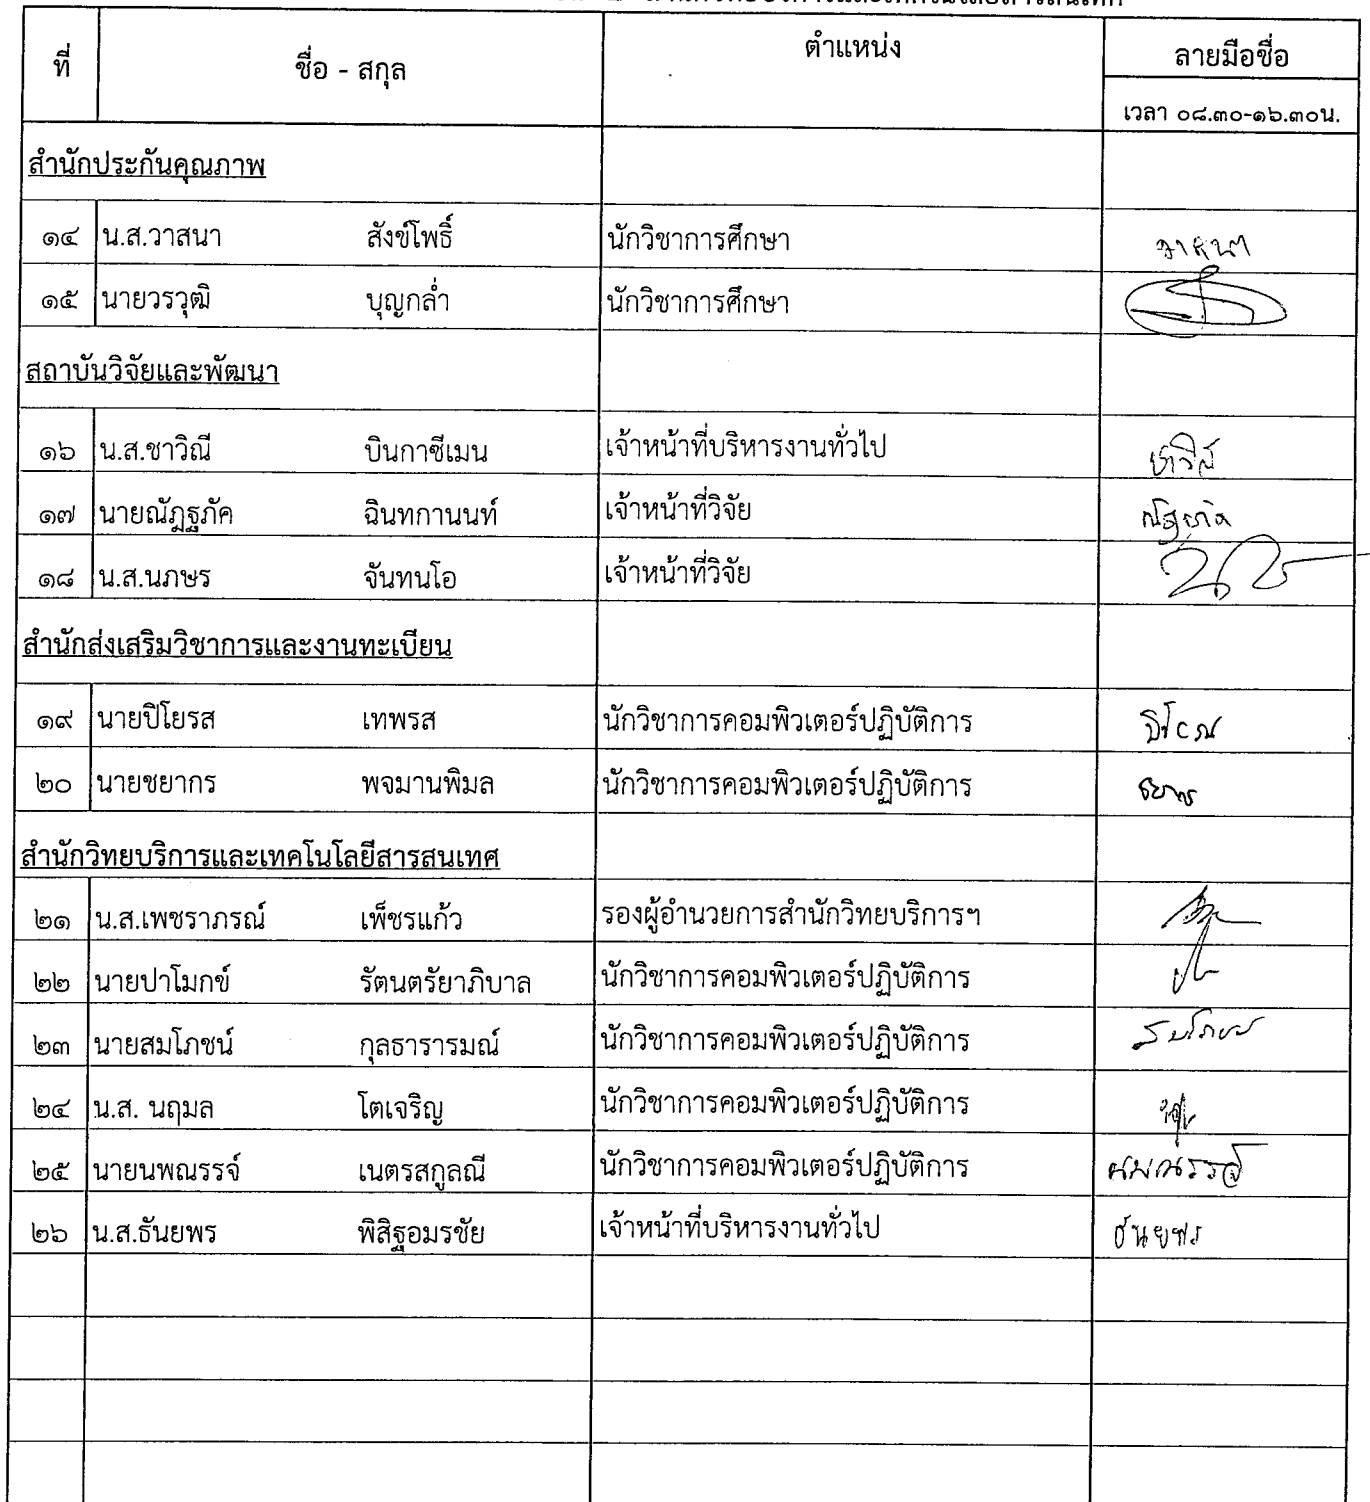 ที่ ชื่อ - สกุล ตำแหน่ง ลายมือชื่อ
เวลา ๐๘.๓๐-๑๖.๓๐น.
สำนักประกันคุณภาพ
๑๔ น.ส.วาสนา สังข์โพธิ์ นักวิชาการศึกษา วาสนา
๑๕ นายวรวุฒิ บุญกล่ำ นักวิชาการศึกษา
สถาบันวิจัยและพัฒนา
๑๖ น.ส.ชาวิณี บินกาซีเมน เจ้าหน้าที่บริหารงานทั่วไป
๑๗ นายณัฎฐภัค ฉินทกานนท์ เจ้าหน้าที่วิจัย
๑๘ น.ส.นภษร จันทนโอ เจ้าหน้าที่วิจัย
สำนักส่งเสริมวิชาการและงานทะเบียน
๑๙ นายปิโยรส เทพรส นักวิชาการคอมพิวเตอร์ปฏิบัติการ
๒๐ นายชยากร พจมานพิมล นักวิชาการคอมพิวเตอร์ปฏิบัติการ
สำนักวิทยบริการและเทคโนโลยีสารสนเทศ
๒๑ น.ส.เพชราภรณ์ เพ็ชรแก้ว รองผู้อำนวยการสำนักวิทยบริการฯ
๒๒ นายปาโมกข์ รัตนตรัยาภิบาล นักวิชาการคอมพิวเตอร์ปฏิบัติการ
๒๓ นายสมโภชน์ กุลธารารมณ์ นักวิชาการคอมพิวเตอร์ปฏิบัติการ
๒๔ น.ส. นฤมล โตเจริญ นักวิชาการคอมพิวเตอร์ปฏิบัติการ
๒๕ นายนพณรรจ์ เนตรสกูลณี นักวิชาการคอมพิวเตอร์ปฏิบัติการ นพณรรจ์
๒๖ น.ส.ธันยพร พิสิฐอมรชัย เจ้าหน้าที่บริหารงานทั่วไป ธันยพร